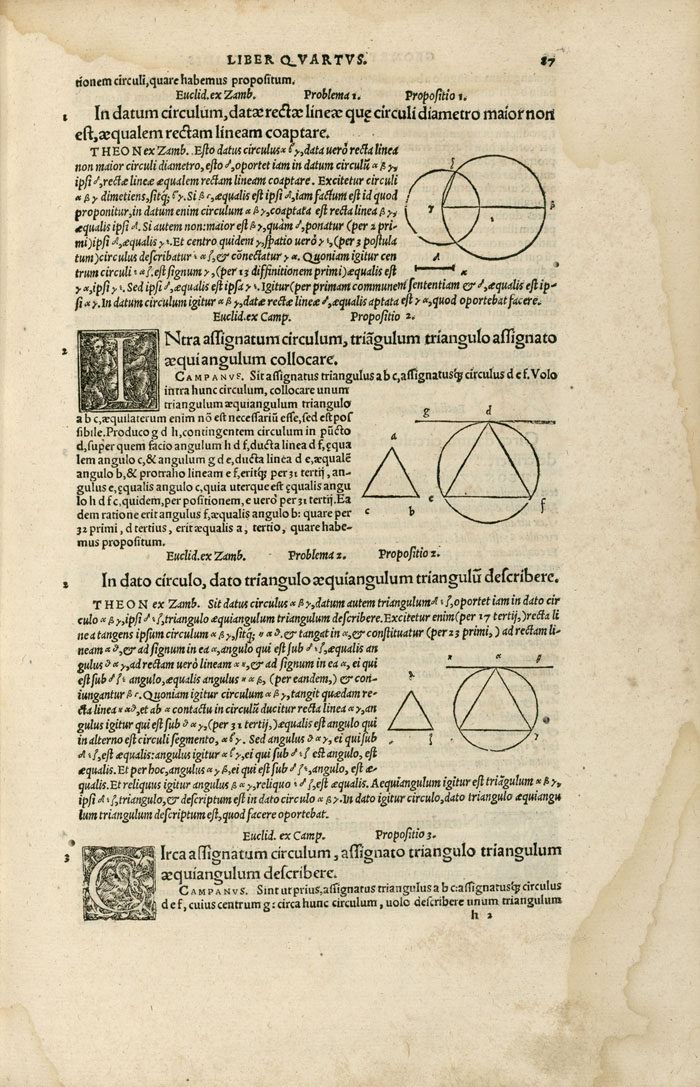 LIBER QVARTVS. 87
tionem circuli, quare habemus propositum.
Euclid. ex Zamb. Problema 1. Propositio 1.
1 In datum circulum, datæ rectæ lineæ quę circuli diametro maior non
est, æqualem rectam lineam coaptare.
THEON ex Zamb. Esto datus circulus α β γ, data uerò recta linea
non maior circuli diametro, esto δ, oportet iam in datum circulū α β γ,
ipsi δ, rectæ lineæ æqualem rectam lineam coaptare. Excitetur circuli
α β γ dimetiens, sitq; β γ. Si β γ, æqualis est ipsi δ, iam factum est id quod
proponitur, in datum enim circulum α β γ, coaptata est recta linea β γ,
æqualis ipsi δ. Si autem non: maior est β γ, quàm δ, ponatur (per 2 pri-
mi) ipsi δ, æqualis γ ε. Et centro quidem γ, spatio uerò γ ε, (per 3 postula
tum) circulus describatur ε α ζ, & cōnectatur γ α. Quoniam igitur cen
trum circuli ε α ζ, est signum γ, (per 15 diffinitionem primi) æqualis est
γ α, ipsi γ ε. Sed ipsi δ, æqualis est ipsa γ ε. Igitur (per primam communem sententiam & δ, æqualis est ip-
si α γ. In datum circulum igitur α β γ, datæ rectæ lineæ δ, æqualis aptata est γ α, quod oportebat facere.
Euclid. ex Camp. Propositio 2.
2 INtra assignatum circulum, triāgulum triangulo assignato
æquiangulum collocare.
CAMPANVS. Sit assignatus triangulus a b c, assignatusq; circulus d e f. Volo
intra hunc circulum, collocare unum
triangulum æquiangulum triangulo
a b c, æquilaterum enim nō est necessariū esse, sed est pos
sibile. Produco g d h, contingentem circulum in pūcto
d, super quem facio angulum h d f, ducta linea d f, ęqua
lem angulo c, & angulum g d e, ducta linea d e, æqualē
angulo b, & protraho lineam e f, eritq; per 31 tertij, an-
gulus e, ęqualis angulo c, quia uterque est ęqualis angu
lo h d f c, quidem, per positionem, e uerò per 31 tertij. Ea
dem ratione erit angulus f, æqualis angulo b: quare per
32 primi, d tertius, erit æqualis a, tertio, quare habe-
mus propositum.
g d
a
c b
e f
Euclid. ex Zamb. Problema 2. Propositio 2.
2 In dato circulo, dato triangulo æquiangulum triangulū describere.
THEON ex Zamb. Sit datus circulus α β γ, datum autem triangulum δ ε ζ, oportet iam in dato cir
culo α β γ, ipsi δ ε ζ, triangulo æquiangulum triangulum describere. Excitetur enim (per 17 tertij,) recta li
nea tangens ipsum circulum α β γ, sitq; η α θ, & tangat in α, & constituatur (per 23 primi,) ad rectam li-
neam α θ, & ad signum in ea α, angulo qui est sub δ ε ζ, æqualis an
gulus θ α γ, ad rectam uerò lineam α η, & ad signum in ea α, ei qui
est sub δ ζ ε angulo, æqualis angulus η α β, (per eandem,) & con-
iungantur β γ. Quoniam igitur circulum α β γ, tangit quædam re-
cta linea η α θ, et ab α contactu in circulū ducitur recta linea α γ, an
gulus igitur qui est sub θ α γ, (per 32 tertij,) æqualis est angulo qui
in alterno est circuli segmento, α β γ. Sed angulus θ α γ, ei qui sub
δ ε ζ, est æqualis: angulus igitur α β γ, ei qui sub δ ε ζ est angulo, est
æqualis. Et per hoc, angulus α γ β, ei qui est sub δ ζ ε, angulo, est æ-
qualis. Et reliquus igitur angulus β α γ, reliquo ε δ ζ, est æqualis. Aequiangulum igitur est triāgulum α β γ,
ipsi δ ε ζ, triangulo, & descriptum est in dato circulo α β γ. In dato igitur circulo, dato triangulo æquiangu
lum triangulum descriptum est, quod facere oportebat.
Euclid. ex Camp. Propositio 3.
3 CIrca assignatum circulum, assignato triangulo triangulum
æquiangulum describere.
CAMPANVS. Sint ut prius, assignatus triangulus a b c: assignatusq; circulus
d e f, cuius centrum g: circa hunc circulum, uolo describere unum triangulum
h 2